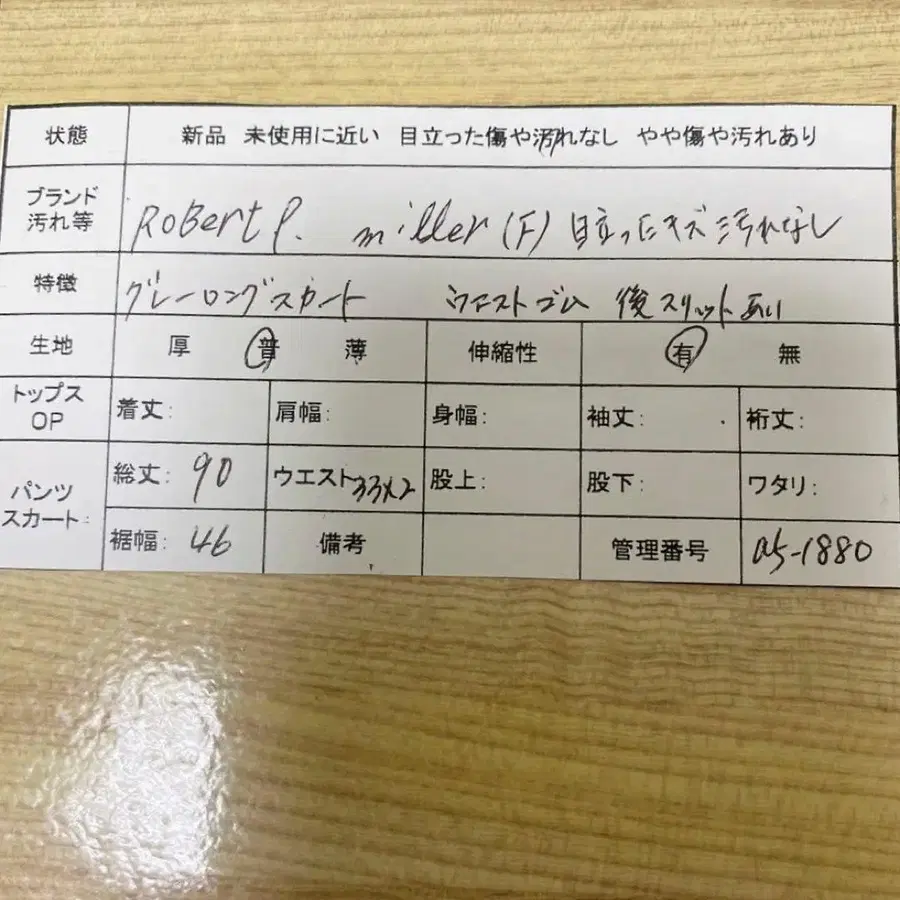 状態 新品 未使用に近い 目立った傷や汚れなし やや傷や汚れあり
ブランド
汚れ等 RoBert P. miller (F) 目立ったキズ汚れなし
特徴 グレーロングスカート ウエストゴム 後スリットあり
生地 厚 普 薄 伸縮性 有 無
トップス
OP 着丈: 肩幅: 身幅: 袖丈: 裄丈:
パンツ
スカート: 総丈: 90 ウエスト 33×2 股上: 股下: ワタリ:
裾幅: 46 備考 管理番号 a5-1880